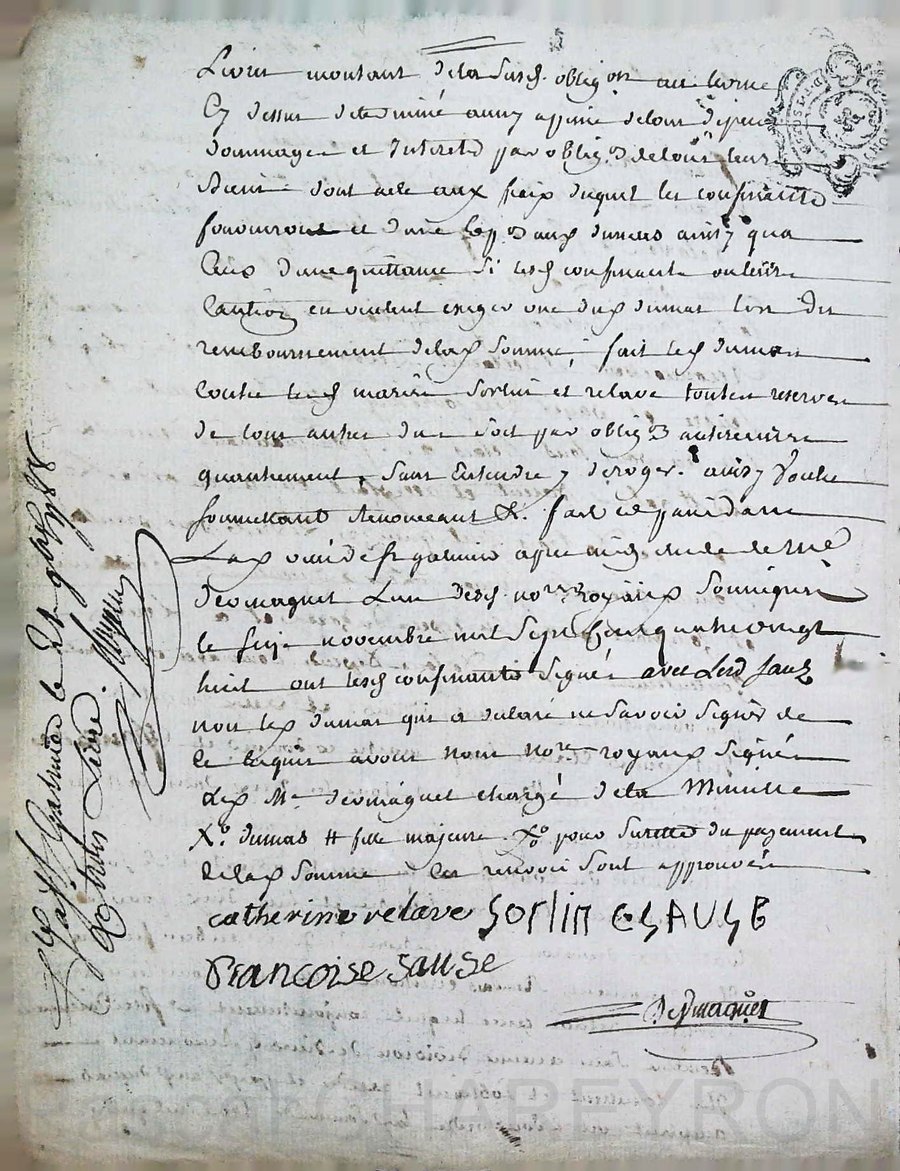 Livres montant de la susd. oblig.on au terme
Cy dessus determiné a peine de tous depens
dommages et Interets par oblig.on de tous leurs
Biens dont acte aux fraix duquel les confinants
fourniront et dune exp.on aux dumas ainsy qua
Ceux dune quittance si lesd confinants ou leur
Caution en veulent exiger une dud dumas lors du
remboursement de lad Somme, fait led dumas
Contre lesd mariés Sorlin et relave toutes reserves
de tous autres dus soit par oblig.on
quautrement, sans Entendre y deroger. ainsy
soumettant Renonceant &. fait et passé dans
apres midy etude de Me
deromaquet Lun desd. no.res royaux Soussignés
le seize novembre mil Sept Cent quatre vingt
huit ont lesd confinants Signés avec Led sauz
non led dumas qui a declaré ne Savoir Signer de
Ce Requis avons nous no.res royaux Signés
Led Me deromaquet chargé de la Minutte
X.o dumas # fille majeure. X.o pour Sureté du payement
de lad Somme Les renvois Sont approuvés
catherine relave Sorlin CLAUSE
FrancoiSe SauSe
Deromaquet
le 21 9bre 1788
livre
Pascal CHAREYRON